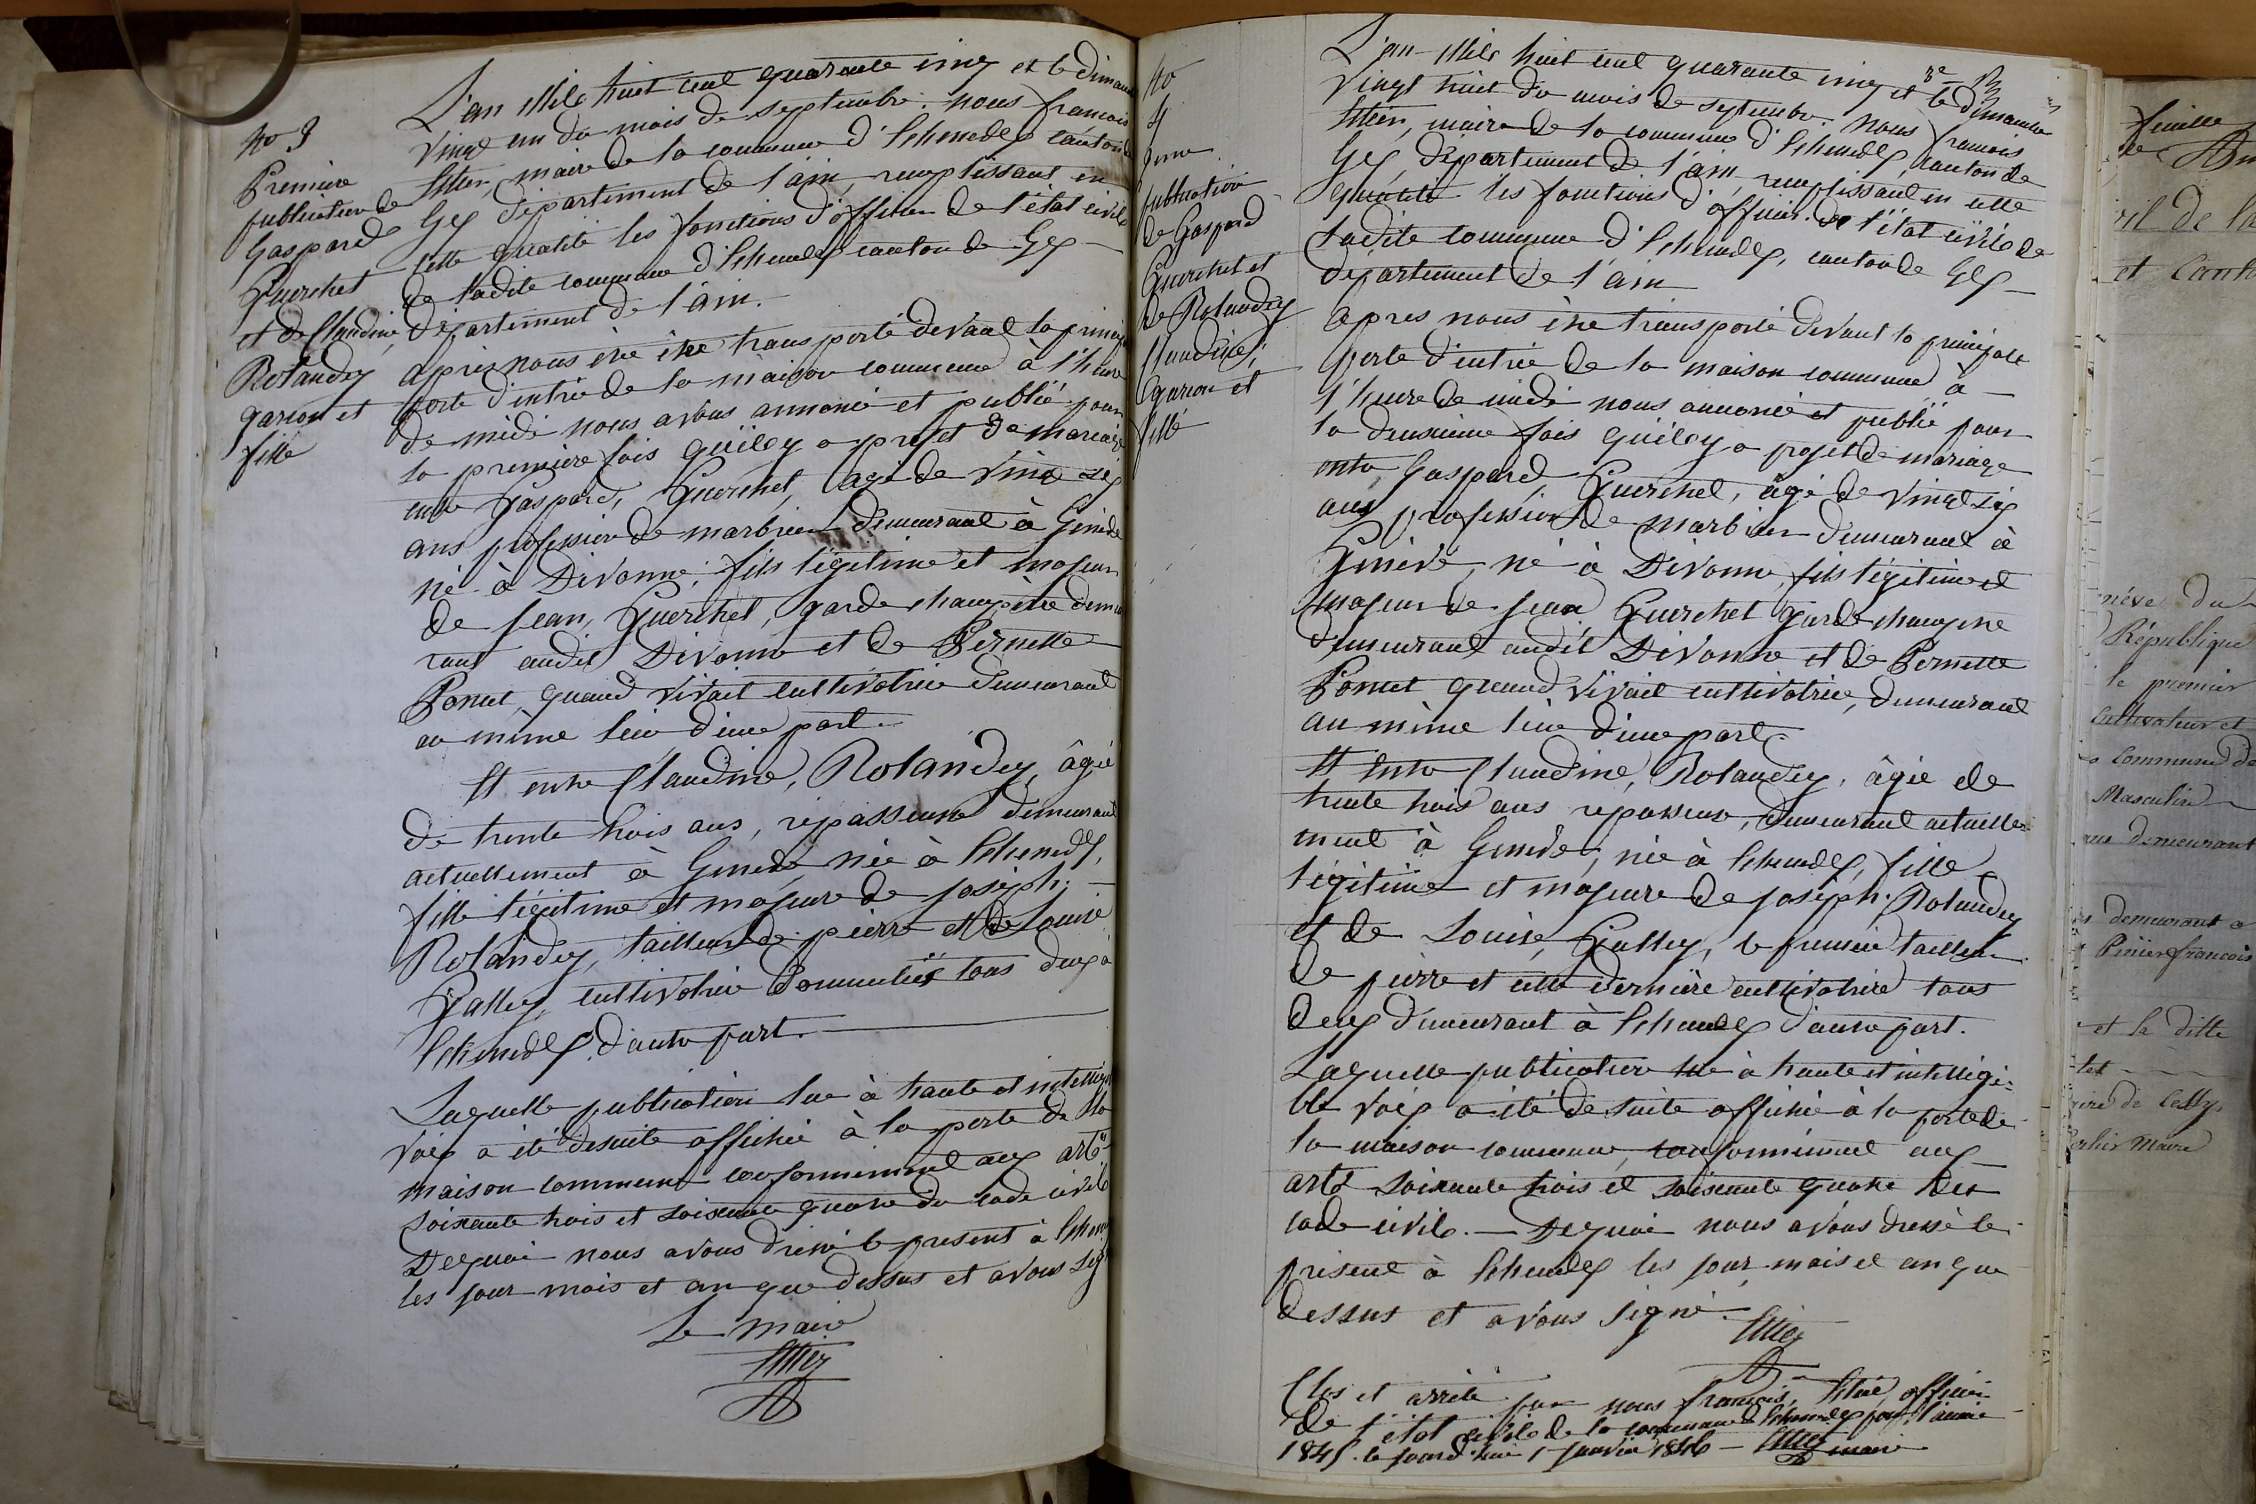 No 3
Première
publication de
Gaspard
Guerchet
et de Claudine,
Rolandey
garcon et
fille
L'an Mile huit cent quarante cinq et le dimanc
vingt un du mois de septembre. nous francois
maire de la commune d'Echenevex canton de
Gex département de l'ain, remplissant en
cette qualité les fonctions d'officier de l'état civile
de ladite commune d'Echenevex canton de Gex
département de l'ain.
après nous être être transporté devant la principa
porte d'entrée de la maison commune à l'heure
de midi nous avons annoncé et publié pour
la première fois quil y a projet de mariage
entre Gaspard, Guerchet, agé de vingt six
ans profession de marbrier demeurant à Genève
né à Divonne; fils légitime et majeur
de jean, Guerchet, garde champêtre demeu
rant audit Divonne et de Pernette
Poncet, quand vivait cultivatrice demeurant
au même lieu d'une part.
Et entre Claudine, Rolandey, âgée
de trente trois ans, repasseuse demeurant
actuellement à Genève née à Echenevex,
fille légitime et majeure de joseph,
Rolandey, tailleur de pierre et de Louise
Gallay, cultivatrice tous deux à
Echenevex d'autre part.
Laquelle publication lue à haute et intelligi
voix a été desuite affichée à la porte de la
maison commune conformément aux arts
soixante trois et soixante quatre du code civile
Dequoi nous avons dressé le présent à Echene
les jour mois et an que dessus et avons sig
Le maire
No
4
2eme
publication
de Gaspard
Guerchet et
de Rolandey
Claudine,
garcon et
fille
L'an Mile huit cent quarante cinq et le dimanche
vingt huit du mois de septembre. nous francois
maire de la commune d'Echenevex, canton de
Gex, département de l'ain, remplissant en cette
qualité les fonctions d'officier de l'état civile de
ladite commune d'Echenevex, canton de Gex
département de l'ain
apres nous être transporté devant la principale
porte d'entrée de la maison commune à
l'heure de midi nous annoncé et publié pour
la deuxième fois quil y a projet de mariage
entre Gaspard, Guerchet, âgé de vingt six
ans profession de marbrier demeurant à
Genève, né à Divonne, fils légitime et
majeur de jean Guerchet garde champetre
demeurant audit Divonne et de Pernette
Poncet quand vivait cultivatrice, demeurant
au même lieu d'une part.
Et entre Claudine, Rolandey, âgée de
trente trois ans repasseuse, demeurant actuelle
ment à Genève, née à Echenevex, fille
légitime et majeure de joseph. Rolandey
et de Louise, Gallay, le premier tailleur
de pierre et cette dernière cultivatrice tous
deux demeurant à Echenevex d'autre part.
Laquelle publication lue à haute et intelligi-
ble voix a été de suite affichée à la porte de
la maison commune, conformément aux
arts soixante trois et soixante quatre du
code civile. — Dequoi nous avons dressé le
présent à Echenevex les jour mois et an que
dessus et avons signé.
Clos et arrêté par nous francois, officier
de l'état civile de la commune d'Echenevex pour l'année
1845. le jourd'hui 1 janvier 1846 — maire
feuille
et Canto
nève du
République
le premier
cultivateur et
commune de
Masculin
demeurant
demeurant a
francois
et le dille
maire de Cessy
Maire